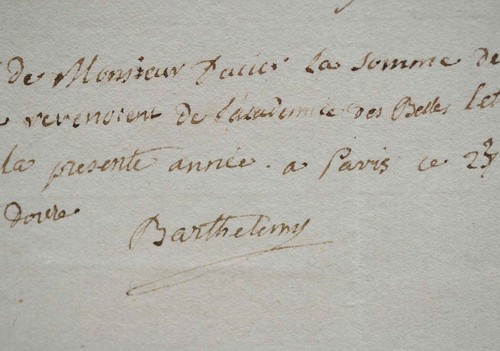 de Monsieur Dacier la somme de
revenoient de l'academie des Belles Let
la presente année. a Paris ce
Barthelemy